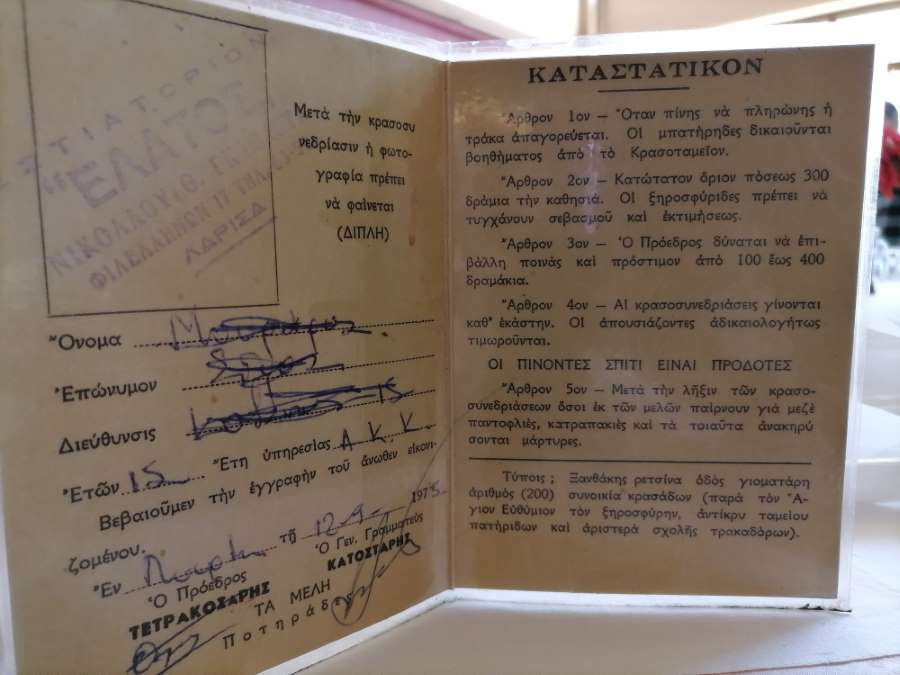 ΕΣΤΙΑΤΟΡΙΟΝ
"ΕΛΑΤΟΣ"
ΝΙΚΟΛΑΟΣ
ΦΙΛΕΛΛΗΝΩΝ 17
ΛΑΡΙΣΑ
Μετὰ τὴν κρασοσυ
νεδρίασιν ἡ φωτο-
γραφία πρέπει
νὰ φαίνεται
(ΔΙΠΛΗ)
Ὄνομα
Ἐπώνυμον
Διεύθυνσις
Ἐτῶν 15 Ἔτη ὑπηρεσίας Α Κ Κ
Βεβαιοῦμεν τὴν ἐγγραφὴν τοῦ ἄνωθεν εἰκονι-
ζομένου.
Ἐν τῇ 12-9- 1975
Ὁ Πρόεδρος
ΤΕΤΡΑΚΟΣΑΡΗΣ
Ὁ Γεν. Γραμματεὺς
ΚΑΤΟΣΤΑΡΗΣ
ΤΑ ΜΕΛΗ
Ποτηράδες
ΚΑΤΑΣΤΑΤΙΚΟΝ
Ἄρθρον 1ον – Ὅταν πίνης νὰ πληρώνης ἡ
τράκα ἀπαγορεύεται. Οἱ μπατήρηδες δικαιοῦνται
βοηθήματος ἀπὸ τὸ Κρασοταμεῖον.
Ἄρθρον 2ον – Κατώτατον ὅριον πόσεως 300
δράμια τὴν καθησιά. Οἱ ξηροσφύριδες πρέπει νὰ
τυγχάνουν σεβασμοῦ καὶ ἐκτιμήσεως.
Ἄρθρον 3ον – Ὁ Πρόεδρος δύναται νὰ ἐπι-
βάλλη ποινάς καὶ πρόστιμον ἀπὸ 100 ἕως 400
δραμάκια.
Ἄρθρον 4ον – Αἱ κρασοσυνεδριάσεις γίνονται
καθ' ἑκάστην. Οἱ ἀπουσιάζοντες ἀδικαιολογήτως
τιμωροῦνται.
ΟΙ ΠΙΝΟΝΤΕΣ ΣΠΙΤΙ ΕΙΝΑΙ ΠΡΟΔΟΤΕΣ
Ἄρθρον 5ον – Μετὰ τὴν λῆξιν τῶν κρασο-
συνεδριάσεων ὅσοι ἐκ τῶν μελῶν παίρνουν γιὰ μεζὲ
παντοφλιές, κατραπακιές καὶ τὰ τοιαῦτα ἀνακηρύ
σονται μάρτυρες.
Τύποις ; Ξανθάκης ρετσίνα ὁδὸς γιοματάρη
ἀριθμὸς (200) συνοικία κρασάδων (παρὰ τὸν Ἅ-
γιον Εὐθύμιον τὸν ξηροσφύρην, ἀντίκρυ ταμείου
πατήριδων καὶ ἀριστερὰ σχολῆς τρακαδόρων).